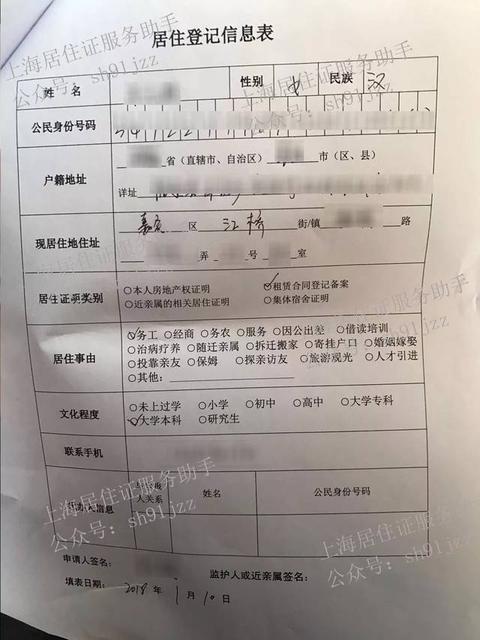 居住登记信息表
姓 名 性别 民族 汉
公民身份号码
户籍地址 省（直辖市、自治区） 市（区、县）
详址
现居住地住址 嘉定 区 江桥 街/镇 路
弄 号 室
居住证明类别 ○本人房地产权证明 ✓租赁合同登记备案
○近亲属的相关居住证明 ○集体宿舍证明
居住事由 ✓务工 ○经商 ○务农 ○服务 ○因公出差 ○借读培训
○治病疗养 ○随迁亲属 ○拆迁搬家 ○寄挂户口 ○婚姻嫁娶
○投靠亲友 ○保姆 ○探亲访友 ○旅游观光 ○人才引进
○其他：
文化程度 ○未上过学 ○小学 ○初中 ○高中 ○大学专科
✓大学本科 ○研究生
联系手机
人关系 姓名 公民身份号码
人信息
申请人签名： 监护人或近亲属签名：
填表日期：2018 年 1 月 10 日
上海居住证服务助手
公众号：sh91jzz
上海居住证服务助手
公众号：sh91jzz
上海居住证服务助手
公众号：sh91jzz
上海居住证服务助手
公众号：sh91jzz